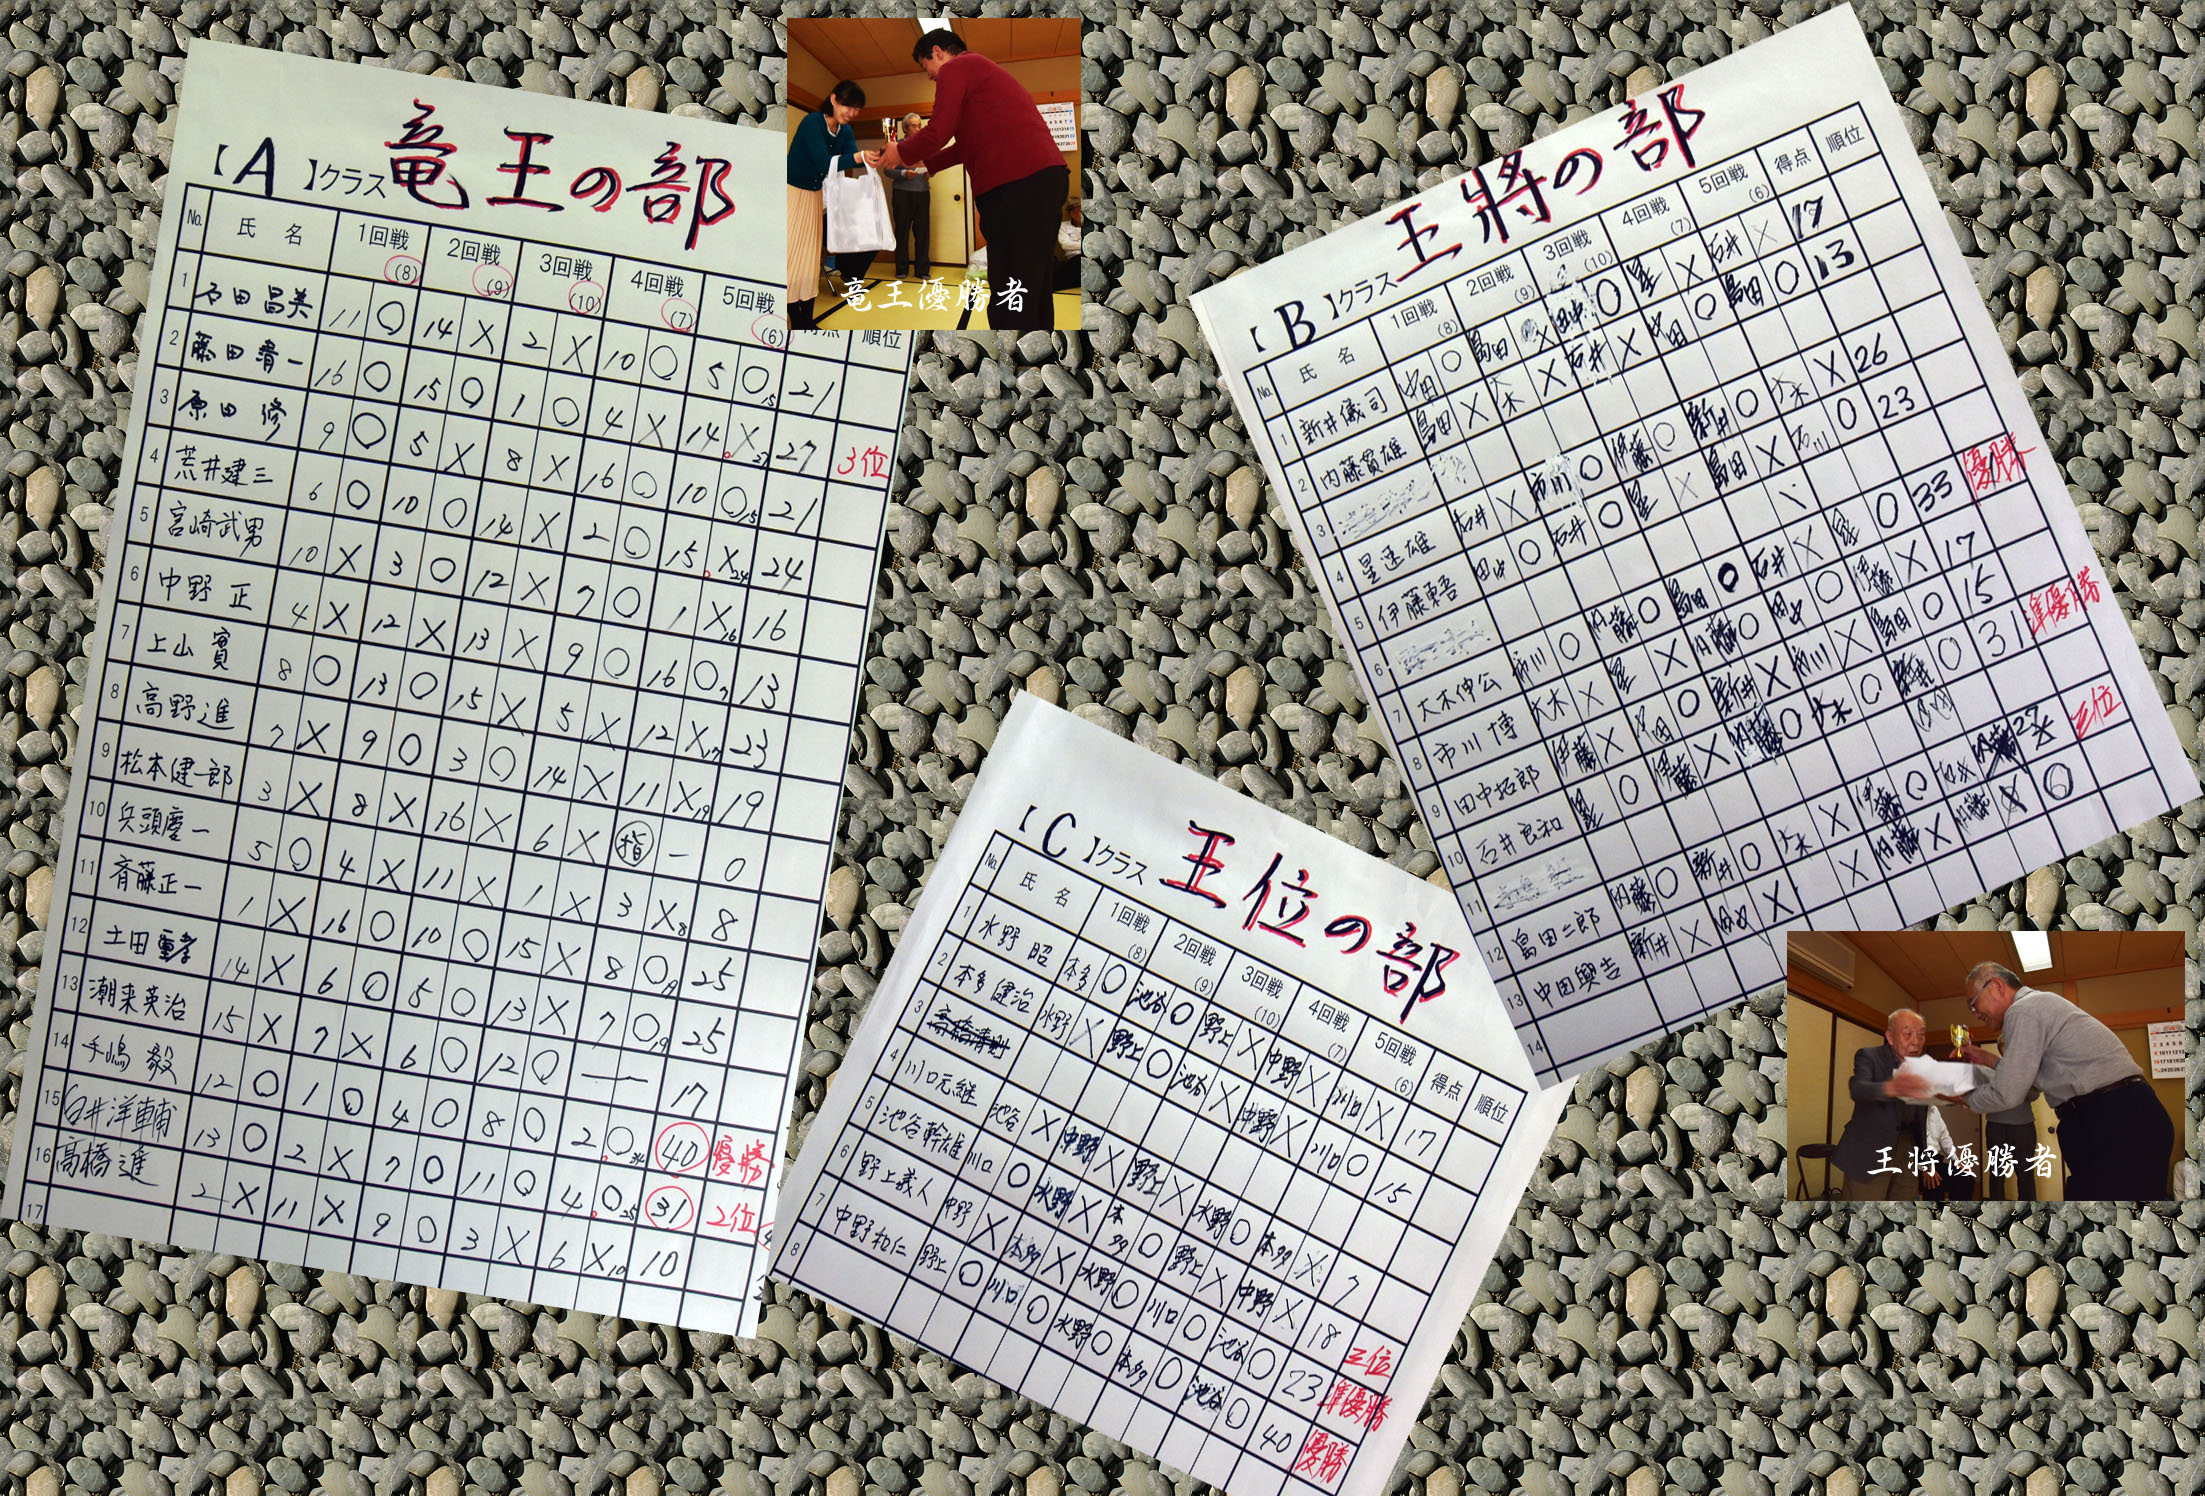 【A】クラス 竜王の部
No. 氏名 1回戦(8) 2回戦(9) 3回戦(10) 4回戦(7) 5回戦(6) 得点 順位
1 石田昌美 11 ○ 14 × 2 × 10 ○ 5 ○ 15 21
2 藤田青一 16 ○ 15 ○ 1 ○ 4 × 14 × 27 27 3位
3 原田修 9 ○ 5 × 8 × 16 ○ 10 ○ 15 21
4 荒井建三 6 ○ 10 ○ 14 × 2 ○ 15 × 24 24
5 宮崎武男 10 × 3 ○ 12 × 7 ○ 1 × 16 16
6 中野正 4 × 12 × 13 × 9 ○ 16 ○ 7 13
7 上山實 8 ○ 13 ○ 15 × 5 × 12 × 17 23
8 高野進 7 × 9 ○ 3 ○ 14 × 11 × 19 19
9 松本健一郎 3 × 8 × 16 × 6 × 指 − 0
10 兵頭慶一 5 ○ 4 × 11 × 1 × 3 × 8 8
11 斉藤正一 1 × 16 ○ 10 ○ 15 × 8 ○ 25
12 土田重孝 14 × 6 ○ 5 ○ 13 × 7 ○ 19 25
13 潮来英治 15 × 7 × 6 ○ 12 ○ — 17
14 手嶋毅 12 ○ 1 ○ 4 ○ 8 ○ 2 ○ 34 40 優勝
15 臼井洋輔 13 ○ 2 × 7 ○ 11 ○ 4 ○ 25 31 2位
16 高橋進 2 × 11 × 9 ○ 3 × 6 × 10 10
17
竜王優勝者
【B】クラス 王將の部
No. 氏名 1回戦(8) 2回戦(9) 3回戦(10) 4回戦(7) 5回戦(6) 得点 順位
1 新井儀司 中田 ○ 島田 × 田中 ○ 星 × 石井 × 17
2 内藤貫雄 島田 × 大木 × 石井 × 中田 ○ 島田 ○ 13
3
4 星還雄 石井 × 市川 ○ 伊藤 ○ 新井 ○ 大木 × 26
5 伊藤東吾 田中 ○ 石井 ○ 星 × 島田 × 石川 ○ 23
6
7 大木伸公 市川 ○ 内藤 ○ 島田 ○ 石井 × 星 ○ 33 優勝
8 市川博 大木 × 星 × 内藤 ○ 田中 ○ 伊藤 × 17
9 田中拓郎 伊藤 × 中田 ○ 新井 × 市川 × 島田 ○ 15
10 石井良和 星 ○ 伊藤 × 内藤 ○ 大木 ○ 新井 ○ 31 準優勝
11
12 島田二郎 内藤 ○ 新井 ○ 大木 × 伊藤 ○ 三位
13 中田興吉 新井 × 田中 × × 内藤 × 内藤 × 6
14
王将優勝者
【C】クラス 王位の部
No. 氏名 1回戦(8) 2回戦(9) 3回戦(10) 4回戦(7) 5回戦(6) 得点 順位
1 水野昭 本多 ○ 池谷 ○ 野上 × 中野 × 川口 × 17
2 本多健治 水野 × 野上 ○ 池谷 × 中野 × 川口 ○ 15
3 高橋清則
4 川口元継 池谷 × 中野 × 野上 × 水野 ○ 本多 × 7
5 池谷幹雄 川口 ○ 水野 × 本多 ○ 野上 × 中野 × 18 三位
6 野上義人 中野 × 本多 × 水野 ○ 川口 ○ 池谷 ○ 23 準優勝
7 中野和仁 野上 ○ 川口 ○ 水野 ○ 本多 ○ 池谷 ○ 40 優勝
8